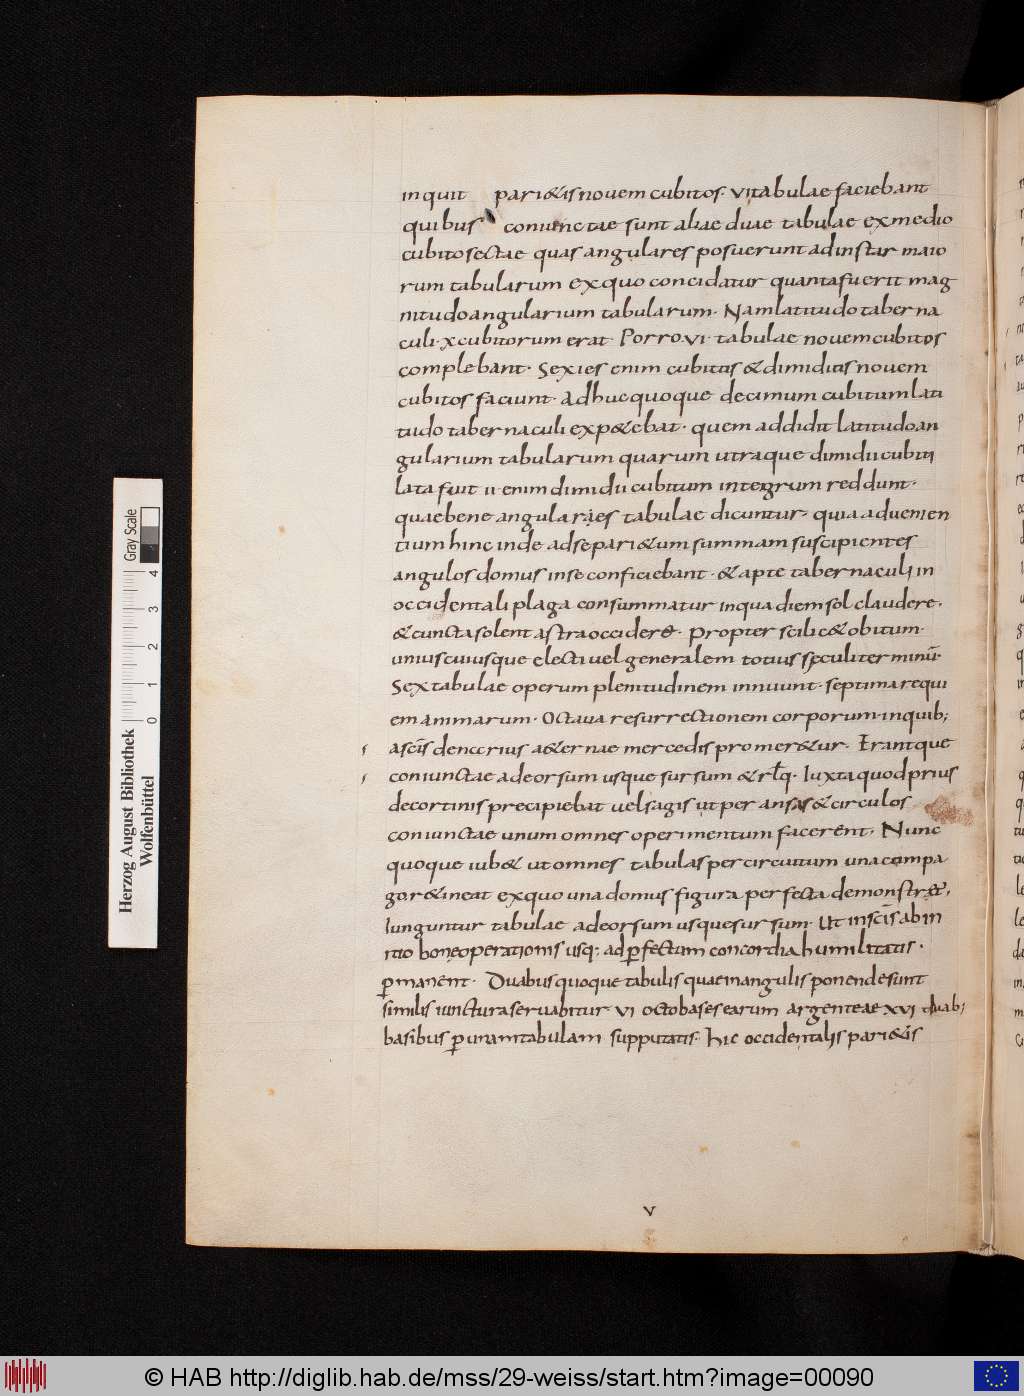 inquit pari&is novem cubitos. vi tabulae faciebant
quibus coniunctae sunt aliae duae tabulae ex medio
cubito sectae quas angulares posuerunt ad instar maio
rum tabularum ex quo concidatur quanta fuerit mag
nitudo angularium tabularum. Nam latitudo taberna
culi. x cubitorum erat. Porro. vi. tabulae novem cubitos
complebant. Sexies enim cubitus & dimiditis novem
cubitos faciunt. Adhuc quoque decimum cubitum lati
tudo tabernaculi exp&ebat. quem addidit latitudo an
gularium tabularum quarum utraque dimidii cubiti
lata fuit ii. enim dimidii cubitum integrum reddunt.
quae bene angulares tabulae dicuntur. quia advenien
tium hinc inde ad se pari&um summam suscipientes
angulos domus in se conficiebant. & apte tabernaculi in
occidentali plaga consummatur in qua diem sol claudere.
& cuncta solent astra occidere. propter scilic& obitum.
uniuscuiusque electi vel generalem totius seculi terminū.
Sex tabulae operum plenitudinem innuunt. septima requi
em animarum. Octava resurrectionem corporum. in quib;
a scīs denarius a&ernae mercedis promer&ur. Erantque
coniunctae a deorsum usque sursum & rłq. Iuxta quod prius
de cortinis precipiebat vel sagis ut per ansas & circulos
coniunctae unum omnes operimentum facerent. Nunc
quoque iub& ut omnes tabulas per circuitum una compa
go r&ineat ex quo una domus figura perfecta demonstr&.
Iunguntur tabulae a deorsum usque sursum. Ut in scīs ab in
itio bone operationis usq; ad ꝑfectum concordia humilitatis.
ꝑmanent. Duabus quoque tabulis quae in angulis ponende sunt
similis iunctura servabitur vi octo bases earum argenteae xvi duab;
basibus ꝑ unam tabulam supputatis. hic occidentalis pari&is
v
Herzog August Bibliothek
Wolfenbüttel
0 1 2 3 4
Gray Scale
© HAB http://diglib.hab.de/mss/29-weiss/start.htm?image=00090